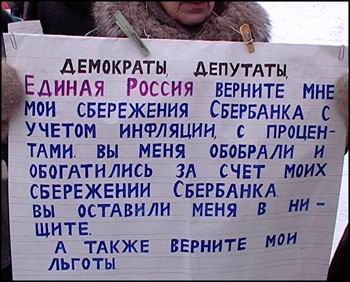 ДЕМОКРАТЫ, ДЕПУТАТЫ,
ЕДИНАЯ РОССИЯ ВЕРНИТЕ МНЕ
МОИ СБЕРЕЖЕНИЯ СБЕРБАНКА С
УЧЕТОМ ИНФЛЯЦИИ, С ПРОЦЕН-
ТАМИ. ВЫ МЕНЯ ОБОБРАЛИ И
ОБОГАТИЛИСЬ ЗА СЧЕТ МОИХ
СБЕРЕЖЕНИИ СБЕРБАНКА.
ВЫ ОСТАВИЛИ МЕНЯ В НИ-
ЩИТЕ.
А ТАКЖЕ ВЕРНИТЕ МОИ
ЛЬГОТЫ